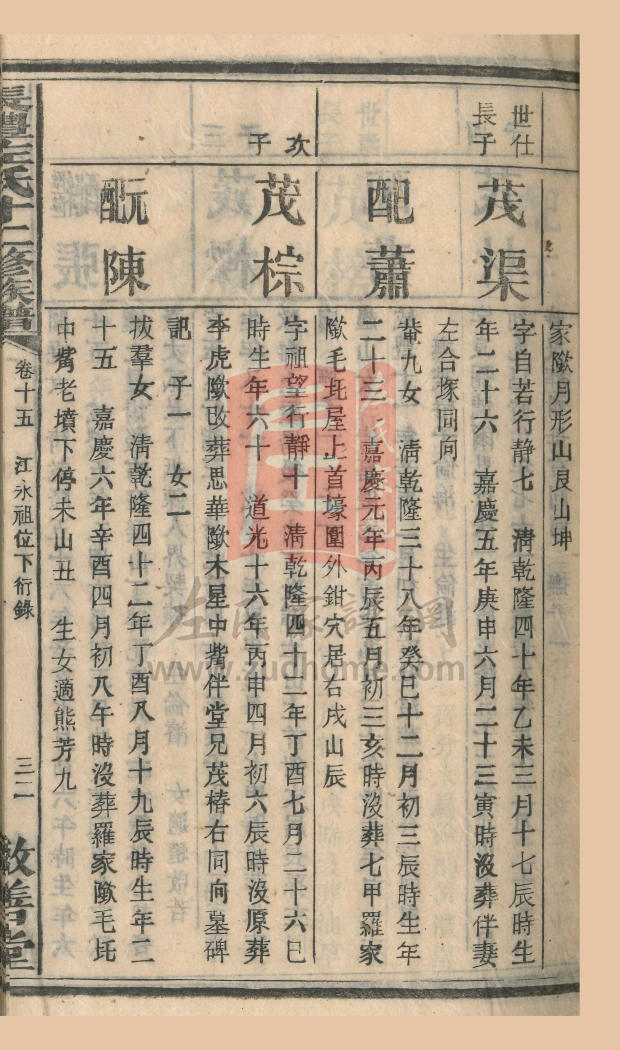 家歐月形山艮山坤
世仕長子
茂渠
字自若行靜七　清乾隆四十年乙未三月十七辰時生
年二十六　嘉慶五年庚申六月二十三寅時沒葬伴妻
左合塚同向
配蕭
菴九女　清乾隆三十八年癸巳十二月初三辰時生年
二十三　嘉慶元年丙辰五月初三亥時沒葬七甲羅家
歐毛坵屋上首壕圍外鉗穴居右戌山辰
次子
茂棕
字祖望行靜十　清乾隆四十二年丁酉七月二十六巳
時生年六十　道光十六年丙申四月初六辰時沒原葬
李虎歐改葬思華歐木星中嘴伴堂兄茂椿右同向墓碑
記　子一　女二
配阮陳
拔羣女　清乾隆四十二年丁酉八月十九辰時生年二
十五　嘉慶六年辛酉四月初八午時沒葬羅家歐毛坵
中嘴老墳下停未山丑　生女適熊芳九
長豐左氏十二修族譜
卷十五　江永祖位下衍錄
三二
敬善堂
左氏家譜網
www.zuohome.com